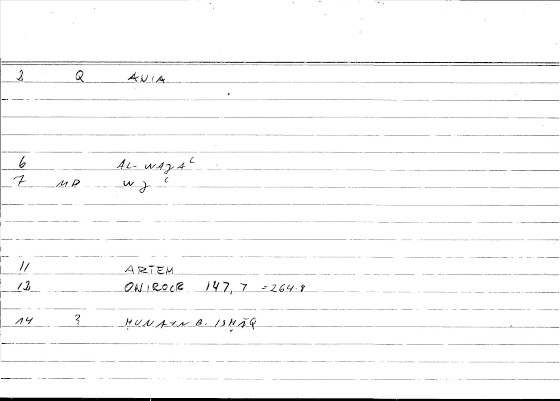 2 Q ANIA
6 AL-WAJAʿ
7 MD WJʿ
11 ARTEM
12 ONIROCR 147,7 =264.8
14 ? ḤUNAYN B. ISḤĀQ